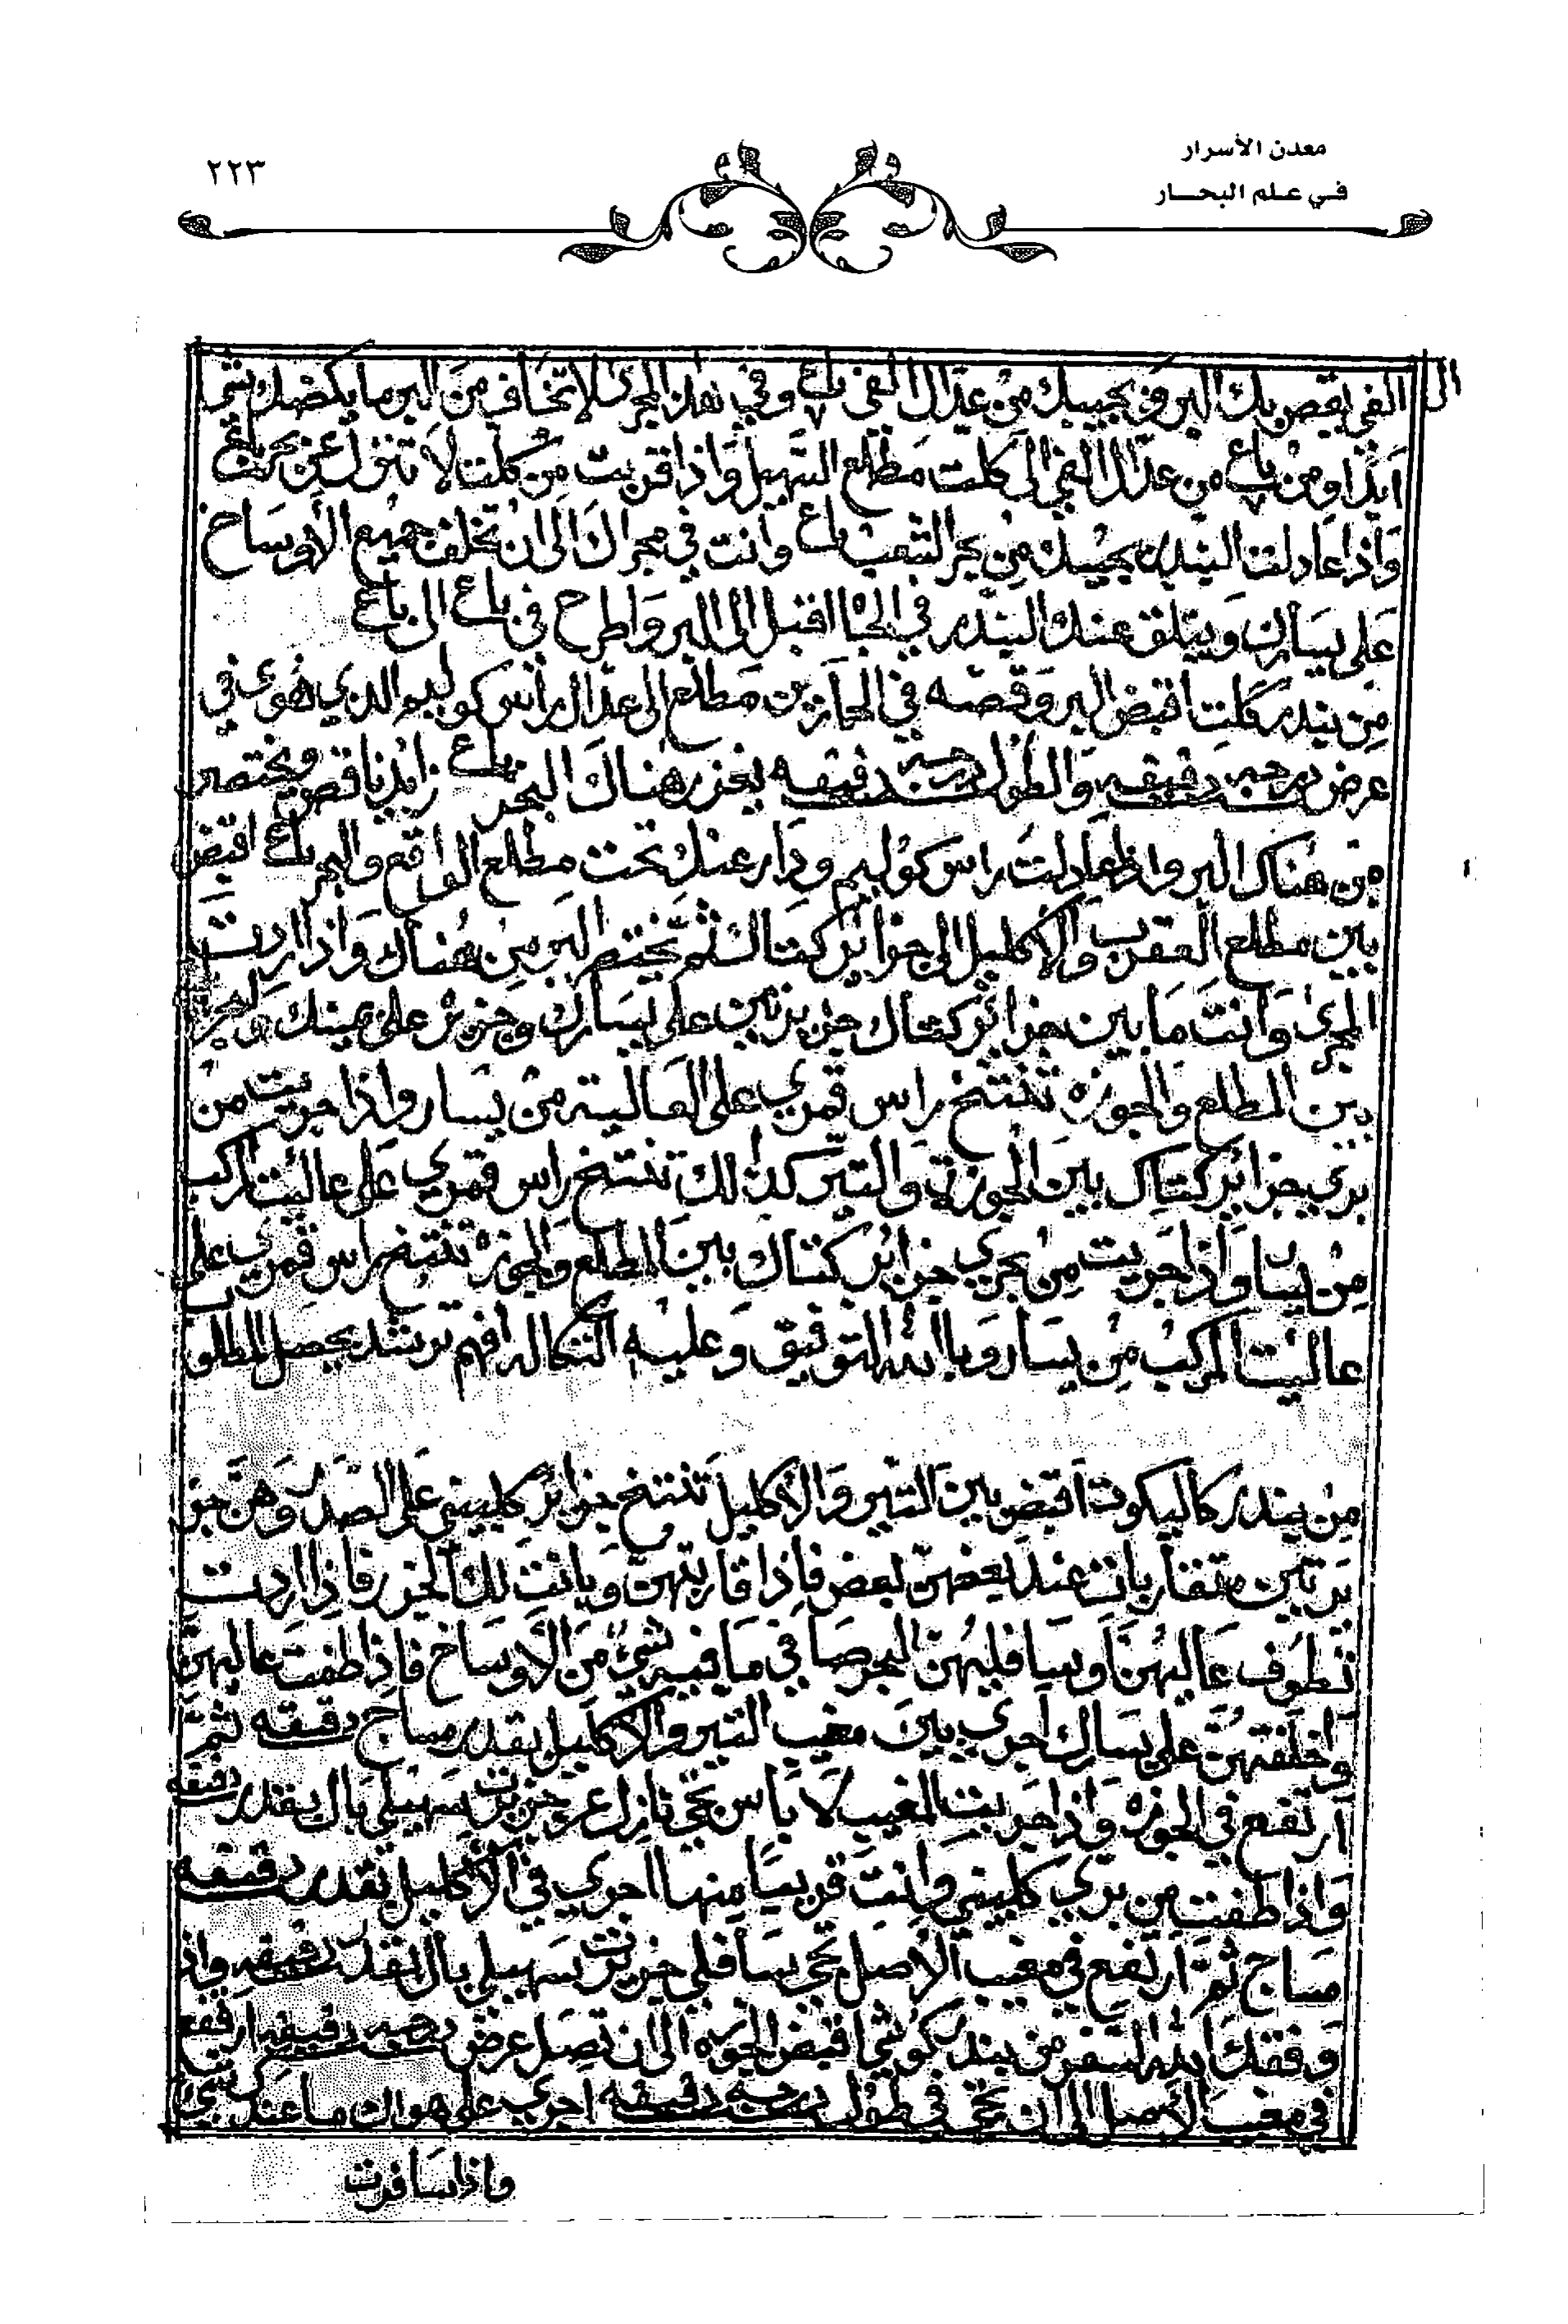 معدن الأسرار
في علم البحار
٢٢٣
الفي يقصر بك البر و يجيبك من عدال الفي باع وفي هذا المجرى لا تخاف من البر ما يكضك شي
ابدا ومن باع من عدال الفي الى كلت مطلع السهيل واذا قربت من كلت لا تنزل عن بحر باع
واذا عادلت البندر يجيبك من بحر الشعب باع وانت في مجراك الى ان تخلف جميع الأوساخ
على يسارك ويتلق عندك البندر في الجاه اقبل الى البر واطرح في باع الى باع
من بندر كلت اقبض البر وقصه في الحمارين مطلع الى عدال راس كوليم الذي هو في
عرض درجه دقيقه والطول درجه دقيقه يغزر هناك البحر باع زايد ناقص ويختصر
من هناك البر واذا عادلت راس كوليم ودار عندك تحت مطلع الواقع والبحر باع اقبض
بين مطلع العقرب والاكليل الى جزائر كتاك ثم يختصر البر من هناك واذا اردت
المجرى وانت ما بين جزائر كتاك جزيرتين على يسارك وجزيره على يمينك
بين المطلع والجوزه تنتخ راس قمري على العالية من يسار واذا جريت من
بري جزائر كتاك بين الجوزة والتير كذالك تنتخ راس قمري على عاليت المركب
من يسار واذا جريت من بحري جزائر كتاك بين المطلع والجوزه تنتخ راس قمري على
عاليت المركب من يسار وباالله التوفيق وعليه التكال افهم ترشد يحصل المطلو
من بندر كاليكوت اقبض بين التير والاكليل تنتخ جزائر كلبيني على الصدر وهن جز
يرتين متقاربات عند بعضهن بعض فإذا قاربتهن وبانت لك الجزر فاذا اردت
تطوف عاليهن وسافليهن البحر صافي ما فيه شيء من الأوساخ فاذا طفت عاليهن
واخلفتهن على يسارك اجري بين مغيب التير والاكليل بقدر مساج دقيقه ثم
ارتفع في الجوزه واذا جريت المغيب لا باس تجي نازل عن جزيرت سهيلي بال بقدر دقيقه
واذا طفت من بري كلبيني وانت قريبا منها اجري في الاكليل بقدر دقيقه
مساج ثم ارتفع في مغيب الاصل تجي سافلي جزيرت سهيلي بال بقدر دقيقه واذ
وفقك الله السفر من بندر كوشي اقبض الجوزه الى ان تصل عرض درجه دقيقه ارتفع
في مغيب الاصل الى ان تجي في طول درجه دقيقه اجري على هواك ما عندك شي
واذا سافرت